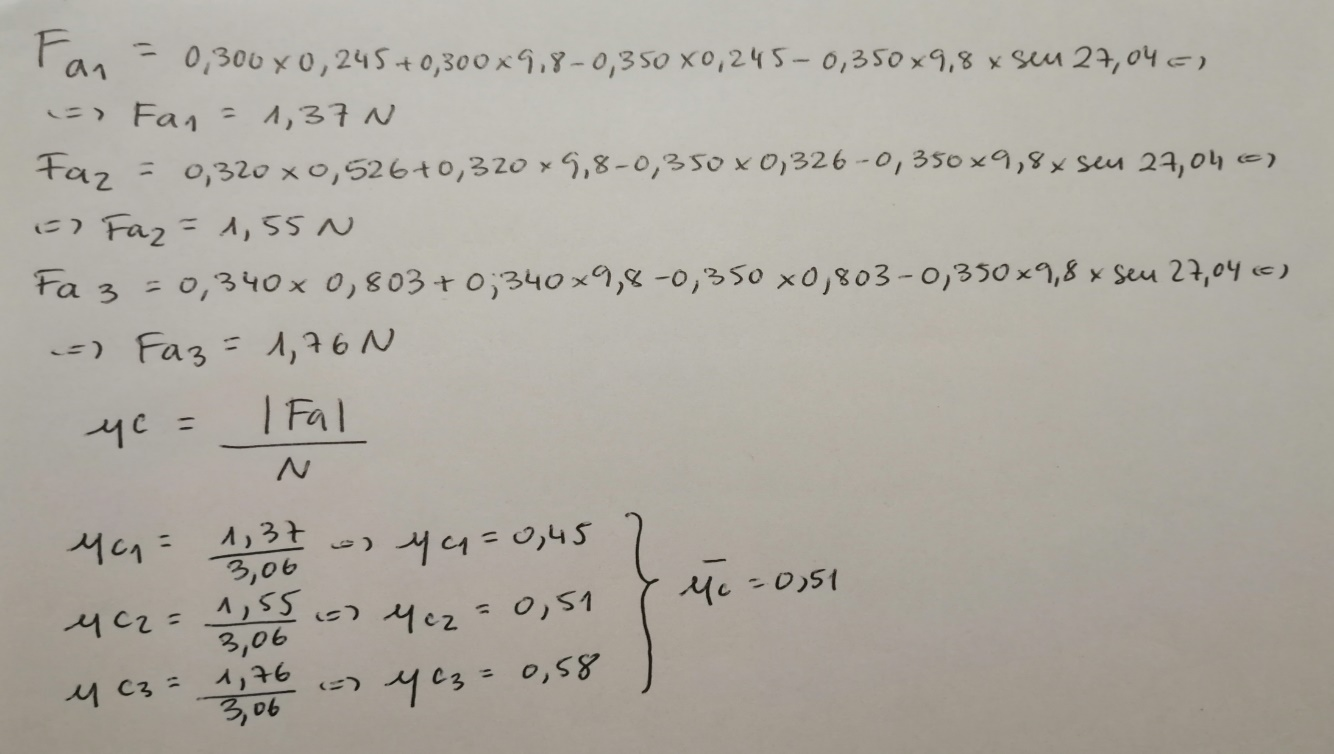 Fa₁ = 0,300 x 0,245 + 0,300 x 9,8 - 0,350 x 0,245 - 0,350 x 9,8 x sen 27,04 <=>
<=> Fa₁ = 1,37 N
Fa₂ = 0,320 x 0,526 + 0,320 x 9,8 - 0,350 x 0,326 - 0,350 x 9,8 x sen 27,04 <=>
<=> Fa₂ = 1,55 N
Fa₃ = 0,340 x 0,803 + 0,340 x 9,8 - 0,350 x 0,803 - 0,350 x 9,8 x sen 27,04 <=>
<=> Fa₃ = 1,76 N
μc = |Fa| / N
μc₁ = 1,37 / 3,06 <=> μc₁ = 0,45
μc₂ = 1,55 / 3,06 <=> μc₂ = 0,51 } μ̄c = 0,51
μc₃ = 1,76 / 3,06 <=> μc₃ = 0,58